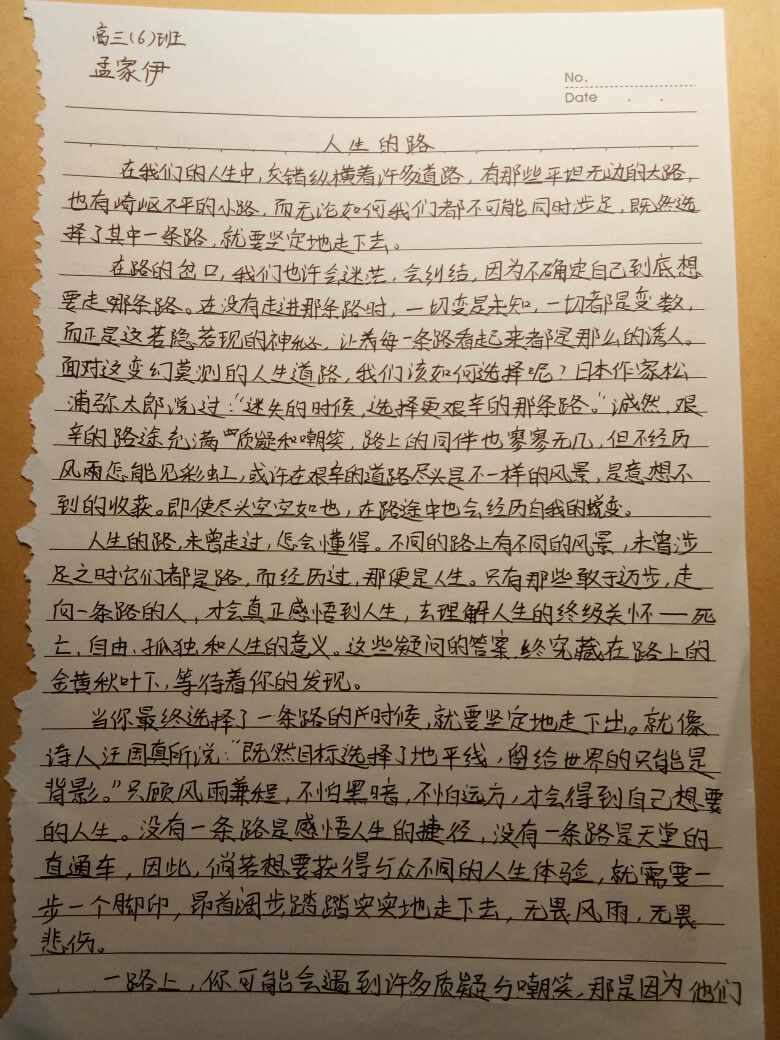 高三(6)班
孟家伊
No.
Date . .
人生的路
在我们的人生中,交错纵横着许多道路,有那些平坦无边的大路,
也有崎岖不平的小路,而无论如何我们都不可能同时涉足,既然选
择了其中一条路,就要坚定地走下去。
在路的岔口,我们也许会迷茫,会纠结,因为不确定自己到底想
要走哪条路。在没有走进那条路时,一切变是未知,一切都是变数,
而正是这若隐若现的神秘,让着每一条路看起来都是那么的诱人。
面对这变幻莫测的人生道路,我们该如何选择呢?日本作家松
浦弥太郎说过:“迷失的时候,选择更艰辛的那条路。”诚然,艰
辛的路途充满质疑和嘲笑,路上的同伴也寥寥无几,但不经历
风雨怎能见彩虹,或许在艰辛的道路尽头是不一样的风景,是意想不
到的收获。即使尽头空空如也,在路途中也会经历自我的蜕变。
人生的路,未曾走过,怎会懂得。不同的路上有不同的风景,未曾涉
足之时它们都是路,而经历过,那便是人生。只有那些敢于迈步,走
向一条路的人,才会真正感悟到人生,去理解人生的终级关怀——死
亡、自由、孤独和人生的意义。这些疑问的答案终究藏在路上的
金黄秋叶下,等待着你的发现。
当你最终选择了一条路的时候,就要坚定地走下出。就像
诗人汪国真所说:“既然目标选择了地平线,留给世界的只能是
背影。”只顾风雨兼程,不怕黑暗,不怕远方,才会得到自己想要
的人生。没有一条路是感悟人生的捷径,没有一条路是天堂的
直通车,因此,倘若想要获得与众不同的人生体验,就需要一
步一个脚印,昂首阔步踏踏实实地走下去,无畏风雨,无畏
悲伤。
一路上,你可能会遇到许多质疑与嘲笑,那是因为他们